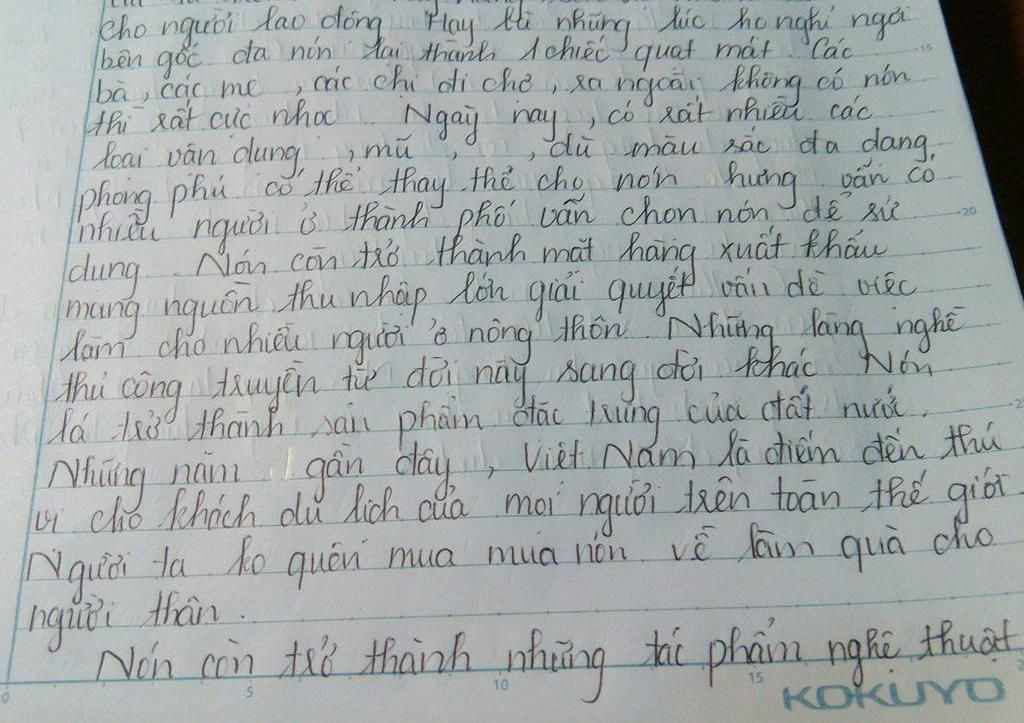 cho người lao động Hay là những lúc họ nghỉ ngơi
bên gốc đa nón lại thành 1 chiếc quạt mát Các
bà, các mẹ, các chị đi chợ, ra ngoài không có nón
thì rất cực nhọc. Ngày nay, có rất nhiều các
loại vân dụng, mũ, , dù màu sắc đa dạng,
phong phú có thể thay thế cho nón hưng vẫn có
nhiều người ở thành phố vẫn chọn nón để sử
dụng. Nón còn trở thành mặt hàng xuất khẩu
mang nguồn thu nhập lớn giải quyết vấn đề việc
làm cho nhiều người ở nông thôn. Những làng nghề
thủ công truyền từ đời này sang đời khác Nón
lá trở thành sản phẩm đặc trưng của đất nước.
Những năm gần đây, Việt Nam là điểm đến thú
vị cho khách du lịch của mọi người trên toàn thế giới
Người ta ko quên mua mua nón về làm quà cho
người thân.
Nón còn trở thành những tác phẩm nghệ thuật
15
20
0 5 10 15
KOKUYO